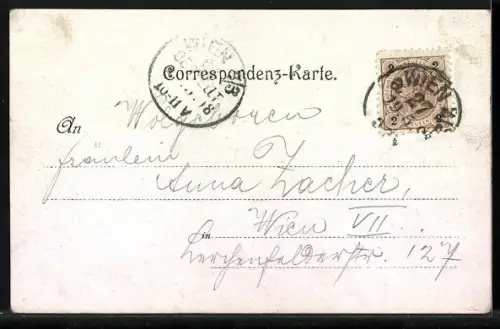 Correspondenz-Karte.
WIEN
WIEN
2 2
An Wolgeboren
Fräulein
Anna Zacher,
in Wien VII.
Lerchenfelderstr. 127